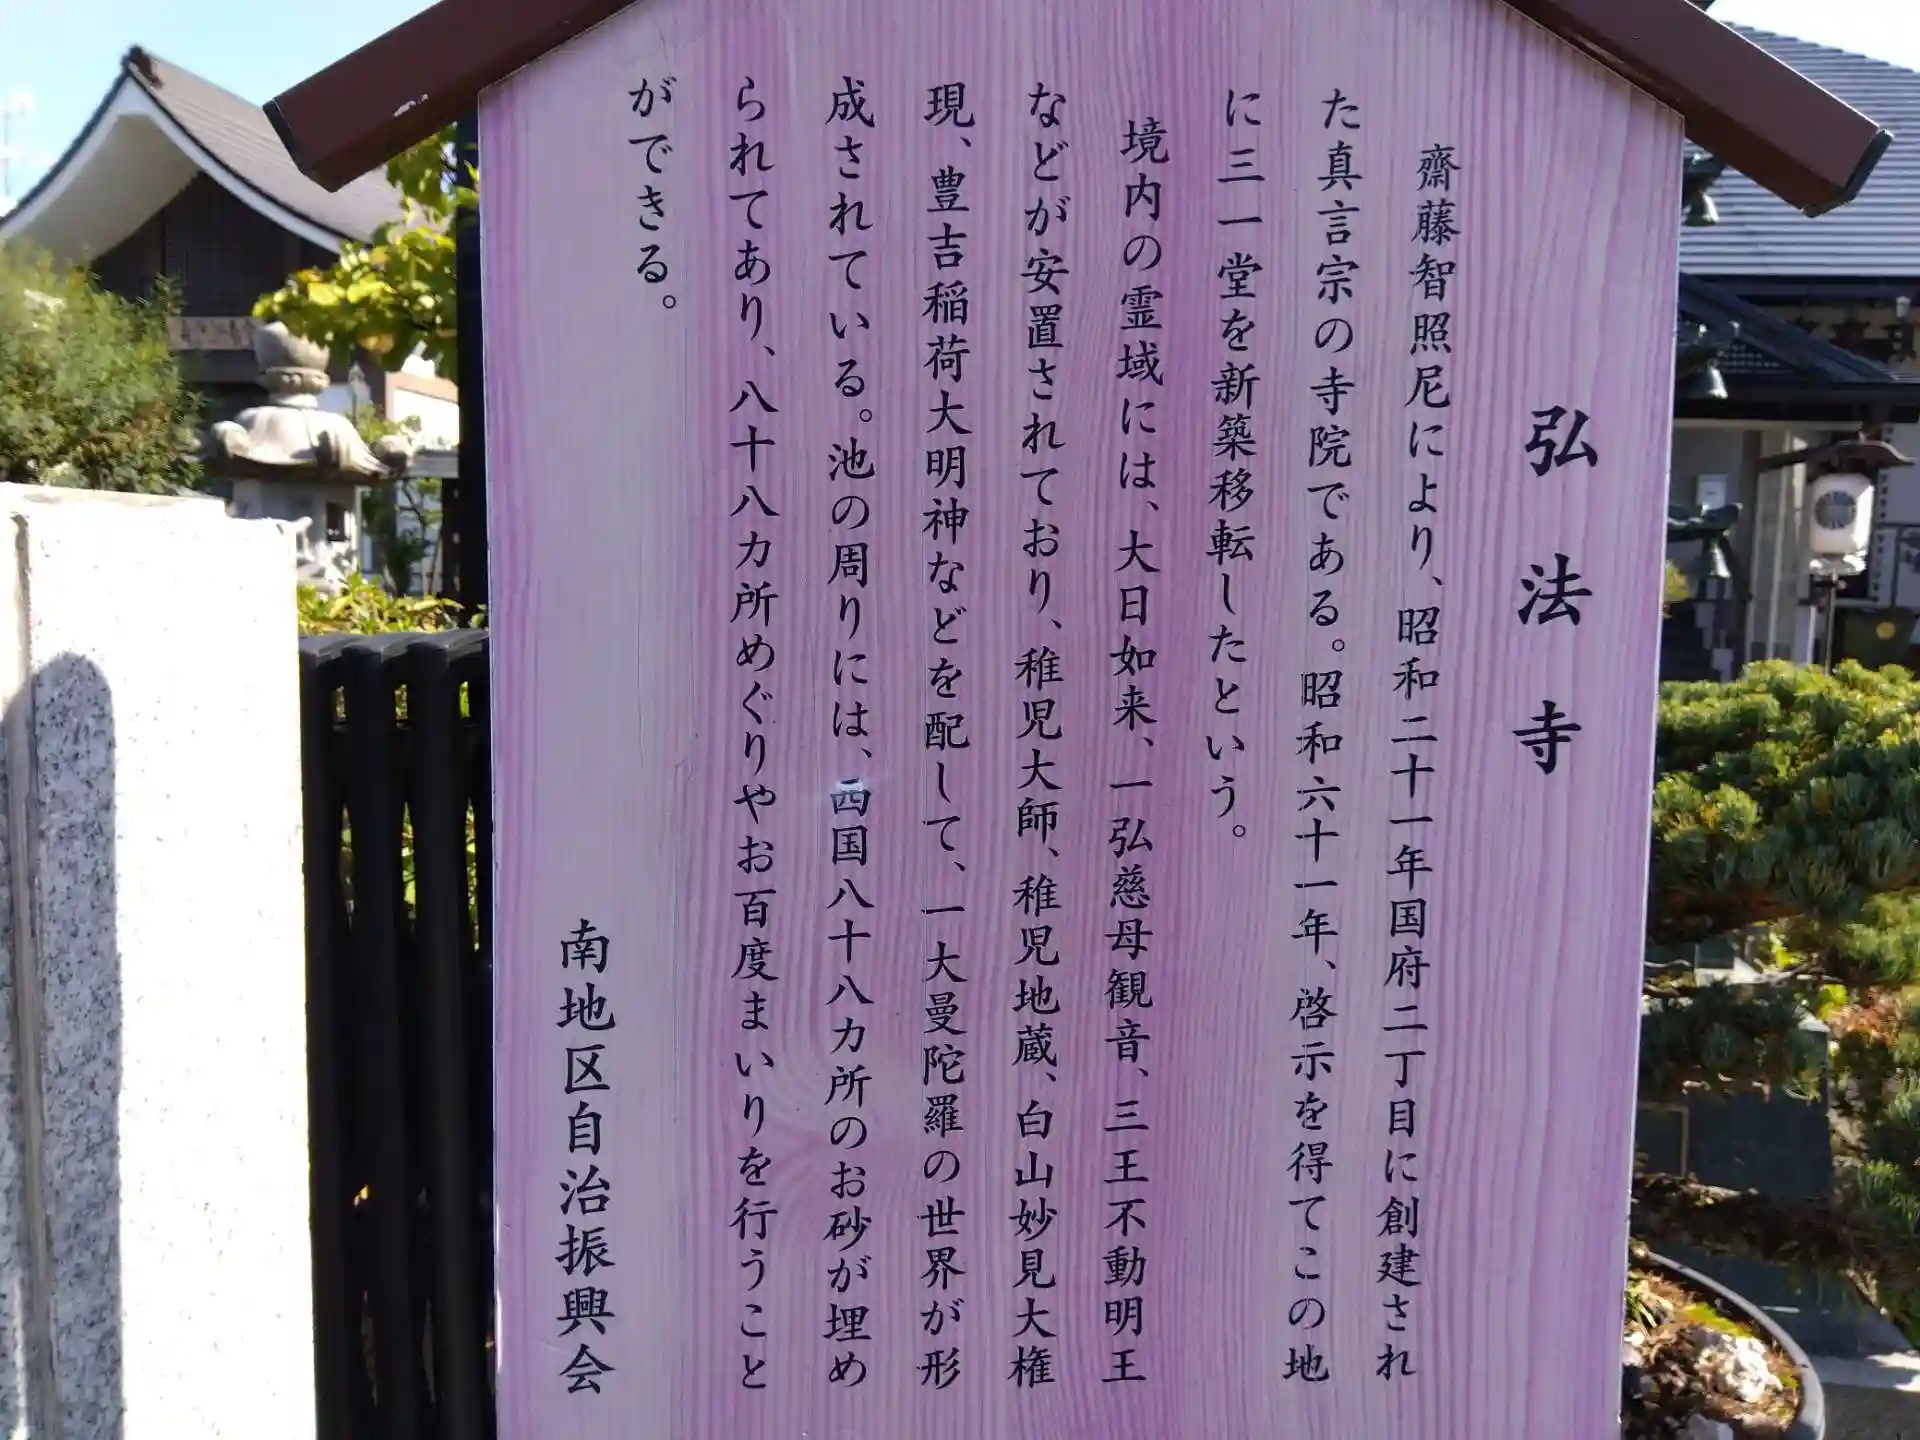 弘法寺
齋藤智照尼により、昭和二十一年国府二丁目に創建され
た真言宗の寺院である。昭和六十一年、啓示を得てこの地
に三一堂を新築移転したという。
境内の霊域には、大日如来、一弘慈母観音、三王不動明王
などが安置されており、稚児大師、稚児地蔵、白山妙見大権
現、豊吉稲荷大明神などを配して、一大曼陀羅の世界が形
成されている。池の周りには、西国八十八カ所のお砂が埋め
られてあり、八十八カ所めぐりやお百度まいりを行うこと
ができる。
南地区自治振興会